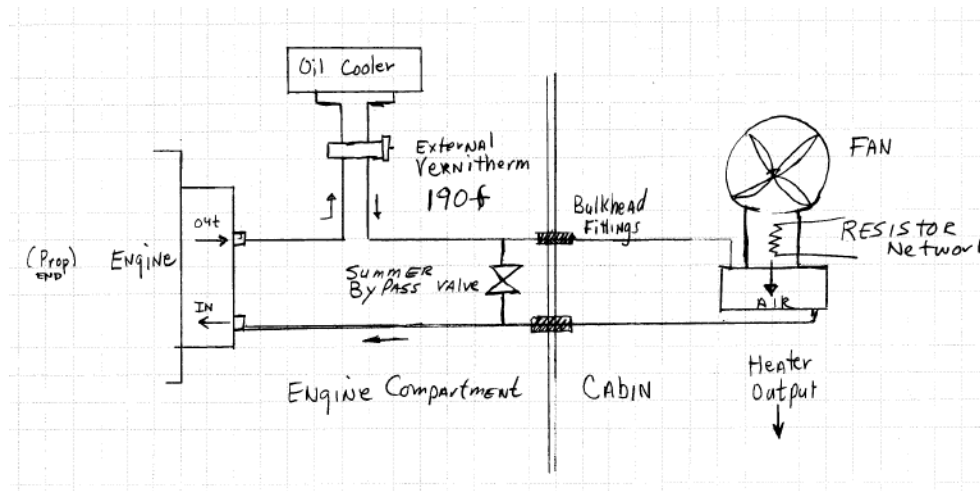 Oil Cooler
External
Vernitherm
190f
FAN
Bulkhead
Fittings
RESISTOR
Network
Out
(Prop)
END
Engine
SUMMER
ByPASS Valve
AIR
IN
Engine Compartment
CABIN
Heater
Output